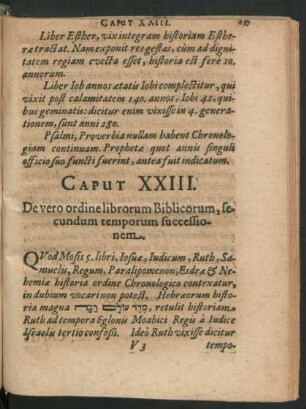 CAPUT XXIII.
Liber Esther, vix integram historiam Esthe-
ræ tractat. Nam exponit res gestas, cùm ad digni-
tatem regiam evecta esset, historia est ferè 10.
annorum.
Liber Iob annos ætatis Iobi complectitur, qui
vixit post calamitatem 140. annos. Iobi 42, qui-
bus geminatis: dicitur enim vixisse in 4. genera-
tionem, sunt anni 280.
Psalmi, Proverbia nullam habent Chronolo-
giam continuam. Prophetæ quot annis singuli
officio suo functi fuerint, antea fuit indicatum.
CAPUT XXIII.
De vero ordine librorum Biblicorum, se-
cundum temporum successio-
nem.
QVod Mosis 5. libri, Iosuæ, Iudicum, Ruth, Sa-
muelis, Regum, Paralipomenon, Esdræ & Ne-
hemiæ historia ordine Chronologico contexatur,
in dubium vocari non potest. Hebræorum histo-
ria magna סדר עולם רבה, retulit historiam
Ruth ad tempora Eglonis Moabici Regis à Iudice
Israelis tertio confossi. Ideò Ruth vixisse dicitur
V 3 tempo-